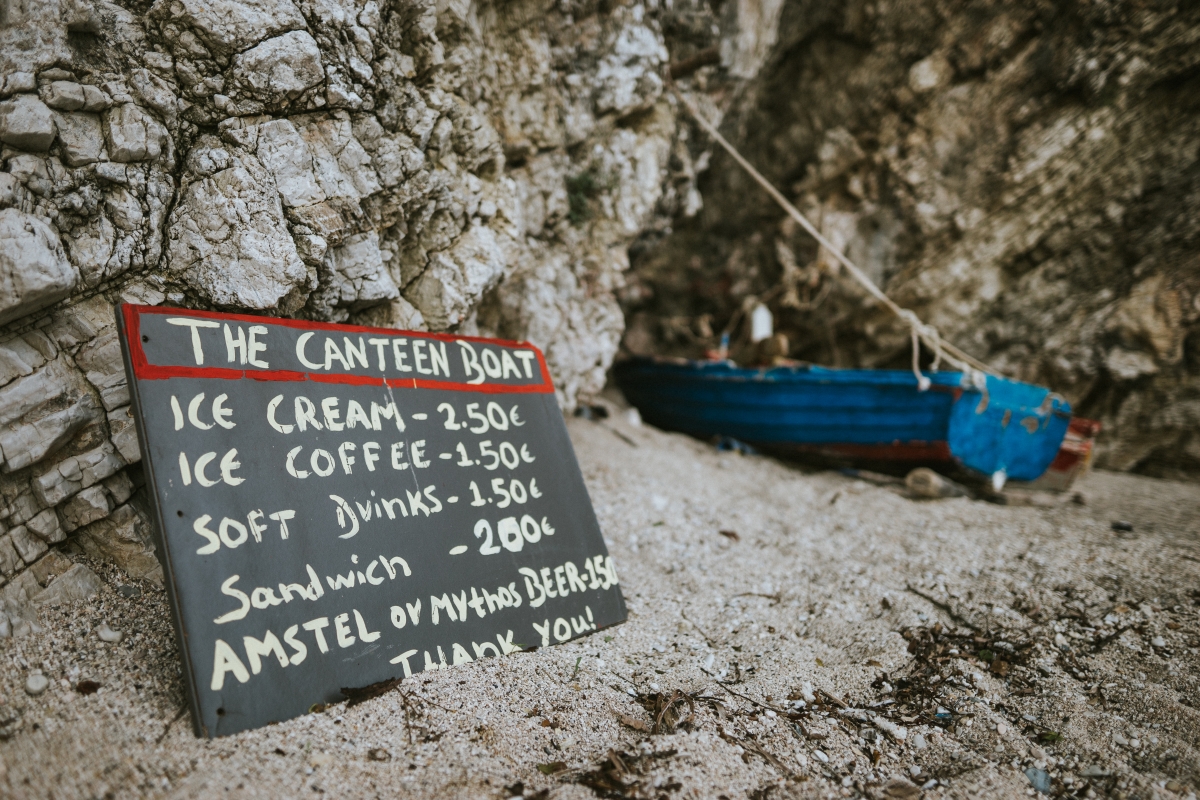 THE CANTEEN BOAT
ICE CREAM - 2.50€
ICE COFFEE - 1.50€
SOFT Drinks - 1.50€
Sandwich - 200€
AMSTEL or Mythos BEER - 150
THANK YOU!